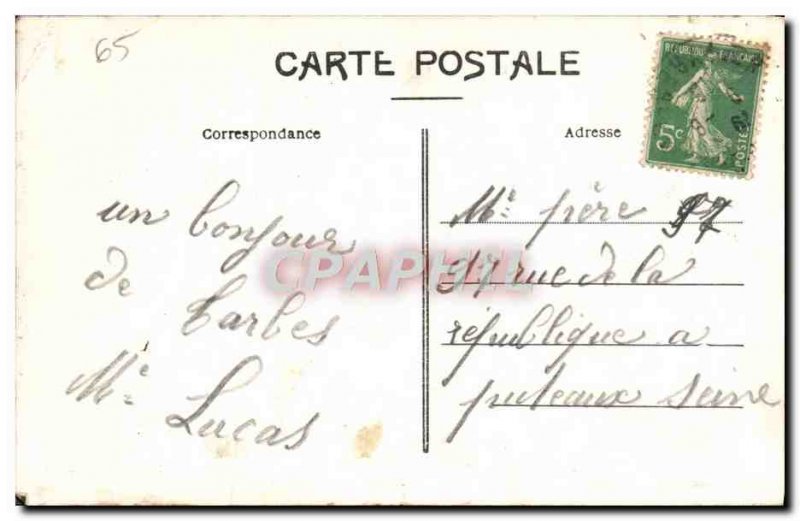 65
CARTE POSTALE
REPUBLIQUE FRANCAISE
5c
POSTES
Correspondance
Adresse
un bonjour
de Tarbes
Me: Lucas
Me: frère 97
97 rue de la
république a
puteaux Seine
CPAPHIL